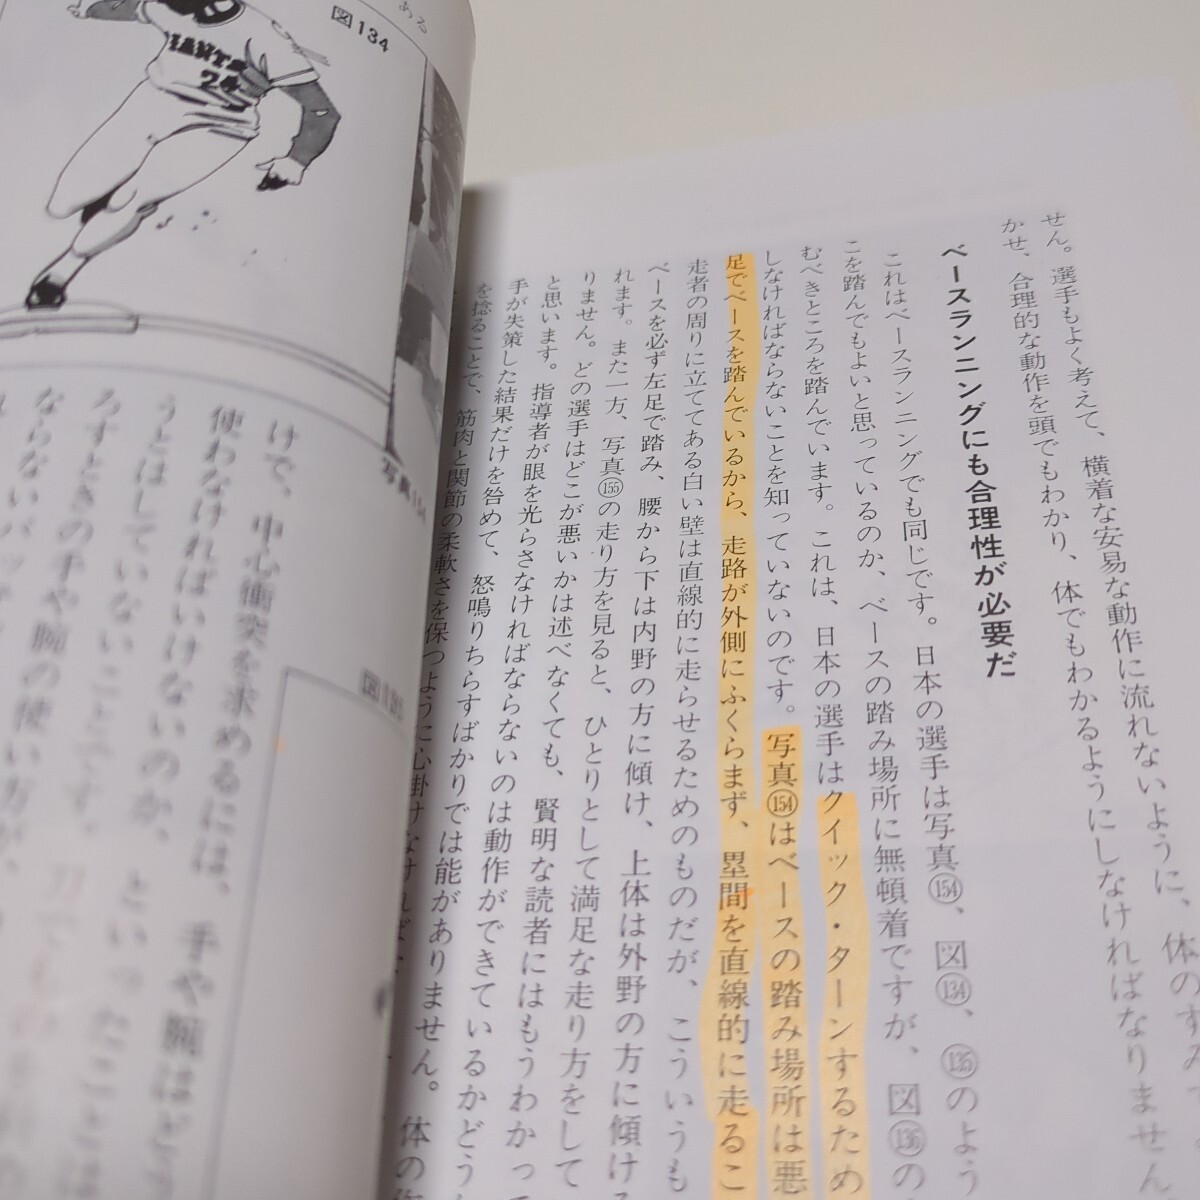 せん。選手もよく考えて、横着な安易な動作に流れないように、体のすみ
かせ、合理的な動作を頭でもわかり、体でもわかるようにしなければなりません
ベースランニングにも合理性が必要だ
これはベースランニングでも同じです。日本の選手は写真⑭、図⑭、⑬のよう
こを踏んでもよいと思っているのか、ベースの踏み場所に無頓着ですが、図⑬の
むべきところを踏んでいます。これは、日本の選手はクイック・ターンするため
しなければならないことを知っていないのです。写真(154)はベースの踏み場所は悪
足でベースを踏んでいるから、走路が外側にふくらまず、塁間を直線的に走るこ
走者の周りに立ててある白い壁は直線的に走らせるためのものだが、こういうも
ベースを必ず左足で踏み、腰から下は内野の方に傾け、上体は外野の方に傾ける
れます。また一方、写真(155)の走り方を見ると、ひとりとして満足な走り方をして
りません。どの選手はどこが悪いかは述べなくても、賢明な読者にはもうわかって
と思います。指導者が眼を光らさなければならないのは動作ができているかどう
手が失策した結果だけを咎めて、怒鳴りちらすばかりでは能がありません。体の
を捻ることで、筋肉と関節の柔軟さを保つように心掛けなければ
ある
図134
GIANTS
24
写真154
図135
けで、中心衝突を求めるには、手や腕はどう
使わなければいけないのか、といったことは
うとはしていないことです。
ろすときの手や腕の使い方が、
ならないバッ